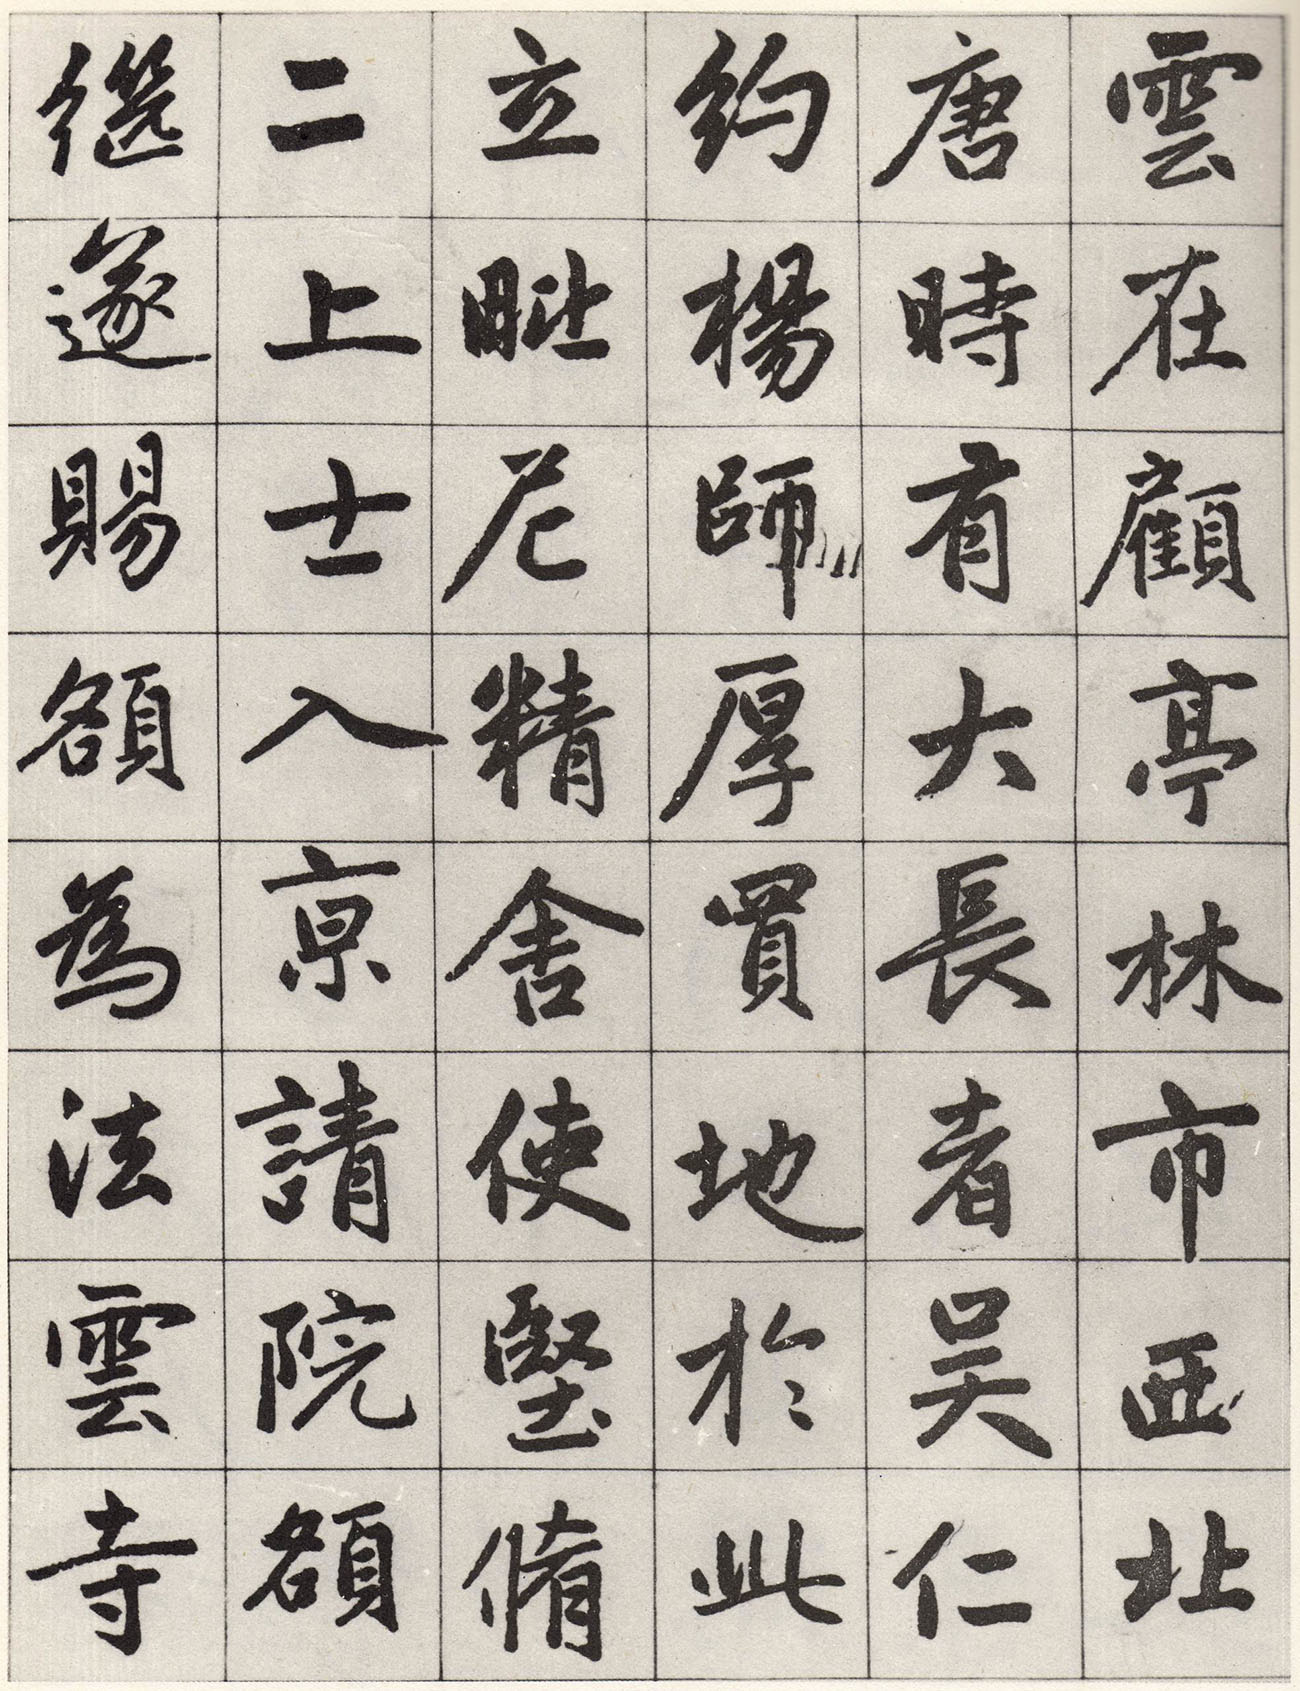 雲在顧亭林市西北
唐時有大長者吳仁
約楊師厚買地於此
立毗尼精舍使堅脩
二上士入京請院額
繼遂賜額為法雲寺